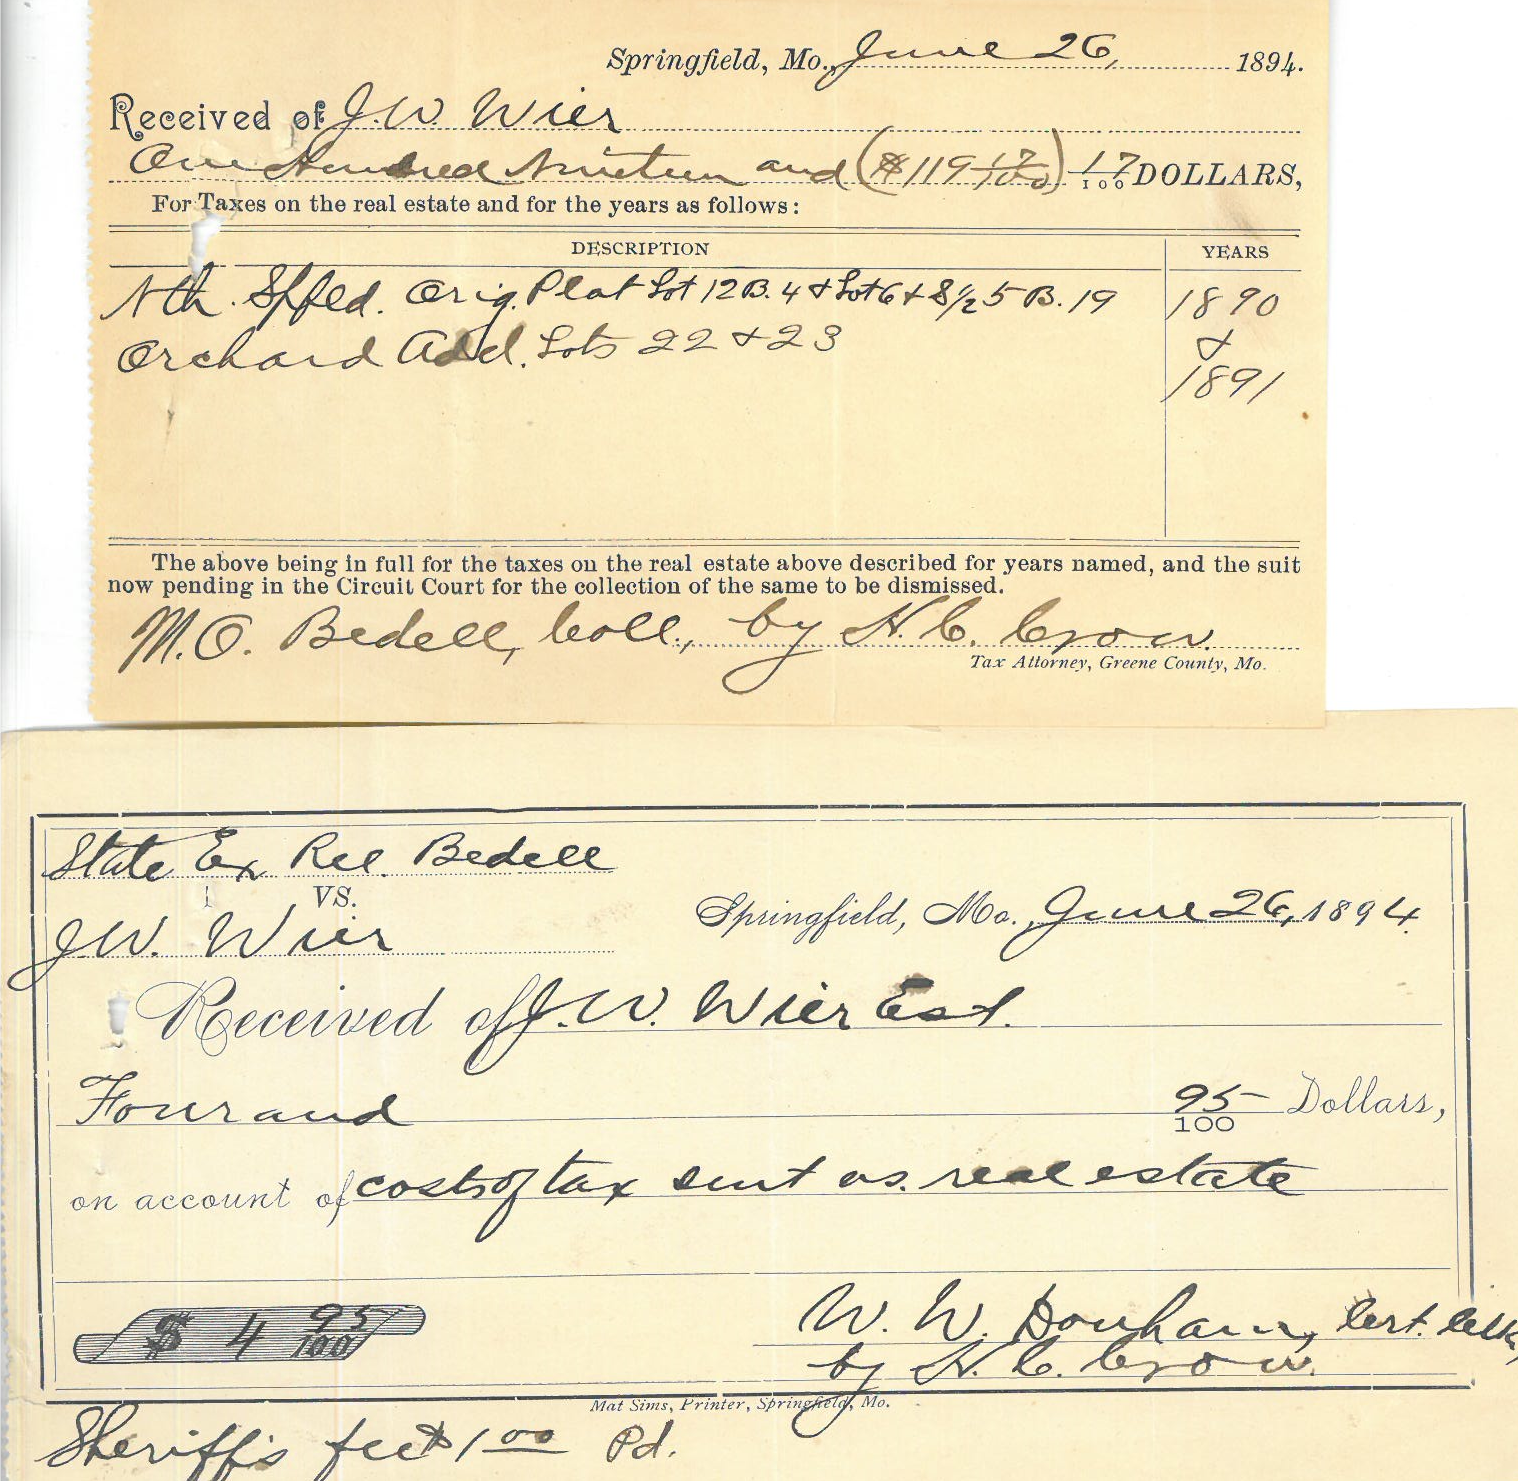 Springfield, Mo., June 26, 1894.
Received of J. W. Wier
One Hundred Nineteen and ($119 17/100) 17/100 DOLLARS,
For Taxes on the real estate and for the years as follows:
DESCRIPTION YEARS
Nth. Spfld. Orig. Plat Lot 12 B. 4 & Lot 6 & 8 1/2 5 B. 19 1890
Orchard Add. Lots 22 & 23 &
1891
The above being in full for the taxes on the real estate above described for years named, and the suit
now pending in the Circuit Court for the collection of the same to be dismissed.
M. O. Bedell, Coll., by H. C. Crow.
Tax Attorney, Greene County, Mo.
State Ex Rel. Bedell
VS.
J. W. Wier
Springfield, Mo., June 26, 1894.
Received of J. W. Wier Est.
Four and 95/100 Dollars,
on account of costs of tax suit vs. real estate
$ 4 95/100
W. W. Donham, Cert. Clk,
by H. C. Crow.
Mat Sims, Printer, Springfield, Mo.
Sheriff's fee $1 00 Pd.